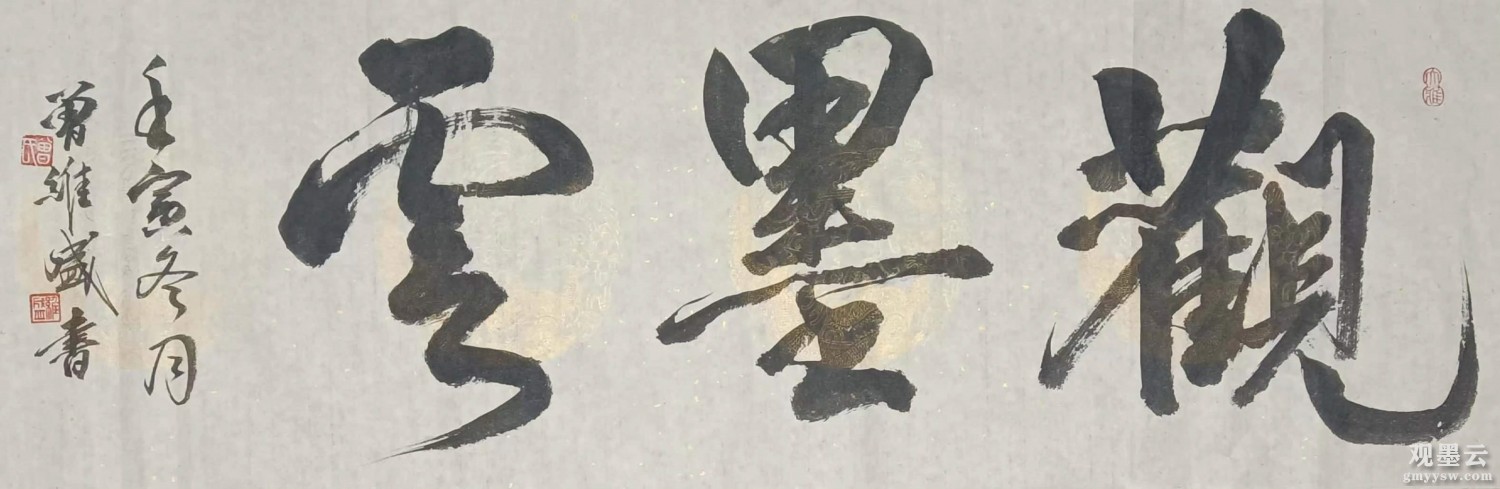 觀墨雲
壬寅冬月
曾維盛書
观墨云
gmyysw.com